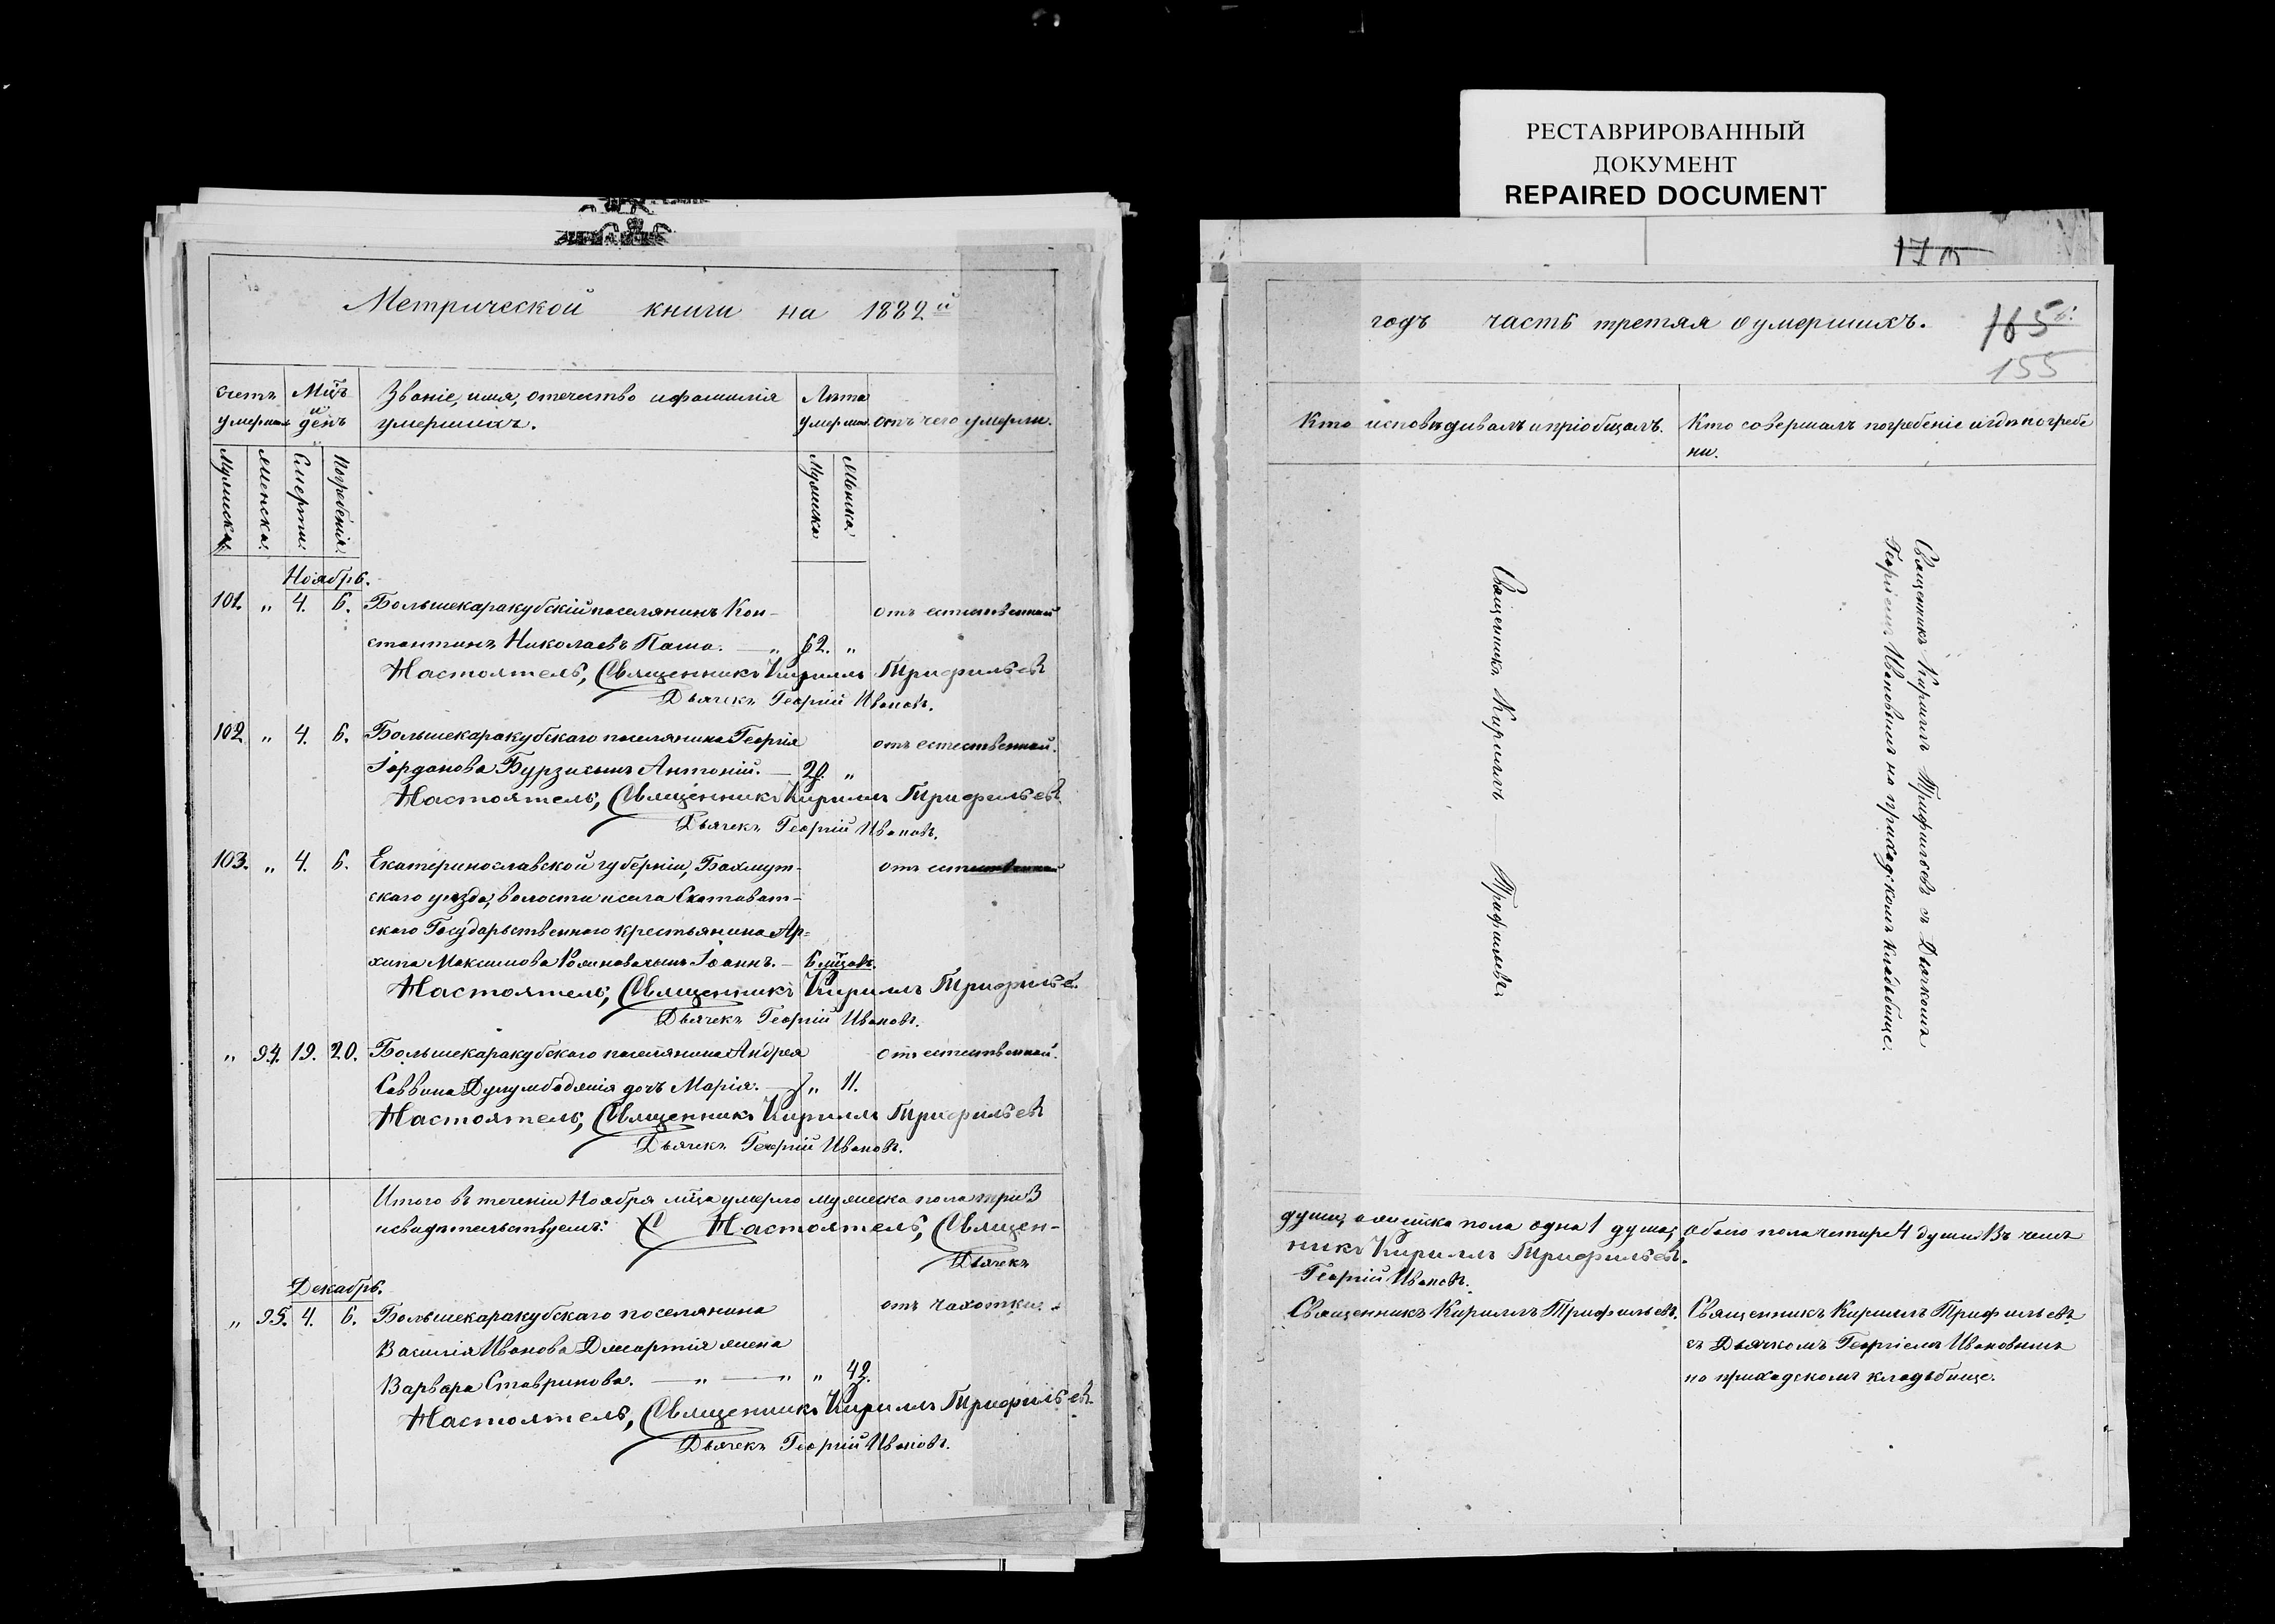 РЕСТАВРИРОВАННЫЙ
ДОКУМЕНТ
REPAIRED DOCUMENT
Метрической книги на 1882й
счетъ умерши
Мцъ и день
Званіе, имя, отечество и фамилія умершихъ.
Лѣта умерши.
отъ чего умерли.
Мужеска.
Женска.
Смерти.
Погребенія.
Мужеска
Женска.
Ноябрь.
101. „ 4. 6. Большекаракубскій поселянинъ Кон- отъ естественной
стантинъ Николаевъ Паша. — „ 62. „
Настоятель, Священникъ Кириллъ Трифильевъ
Дьячекъ Георгій Ивановъ.
102 „ 4. 6. Большекаракубскаго поселянина Георгія отъ естественной.
Іорданова Бурзи сынъ Антоній. — 20. „
Настоятель, Священникъ Кириллъ Трифильевъ
Дьячекъ Георгій Ивановъ.
103. „ 4. 6. Екатеринославской губерніи, Бахмут- отъ естественной
скаго уѣзда, волости и села Скотоват-
скаго Государственного крестьянина Ар=
хипа Максимова сынъ Іоаннъ. — 6 мцовъ.
Настоятель, Священникъ Кириллъ Трифилье.
Дьячекъ Георгій Ивановъ.
„ 94. 19. 20. Большекаракубскаго поселянина Андрея отъ естественной.
Саввина дочь Марія. — „ 11.
Настоятель, Священникъ Кириллъ Трифильевъ
Дьячекъ Георгій Ивановъ.
Итого въ теченіи Ноября мца умерло мужеска пола три 3
исвидѣтельствуемъ: Настоятель, Священ-
Дьячекъ
Декабрь.
„ 95. 4. 6. Большекаракубскаго поселянина отъ чахотки.
Василія Иванова жена
Варвара Ставринова. — „ — „ „ 42.
Настоятель, Священникъ Кириллъ Трифильевъ.
Дьячекъ Георгій Ивановъ.
170
годъ часть третяя о умершихъ.
165
155
Кто исповѣдивалъ и пріобщалъ.
Кто совершалъ погребеніе и гдѣ погребе
ни.
Священникъ Кириллъ Трифильевъ
Священникъ Кириллъ Трифильевъ съ Дьячкомъ
Георгіемъ Ивановимъ на приходскомъ кладьбище.
души, а женска пола одна 1 душа, обоего пола четыре 4 души Въ чемъ
никъ Кириллъ Трифильевъ.
Георгій Ивановъ.
Священникъ Кириллъ Трифильевъ.
Священникъ Кириллъ Трифильевъ
съ Дьячкомъ Георгіемъ Ивановимъ
на приходскомъ кладьбище.